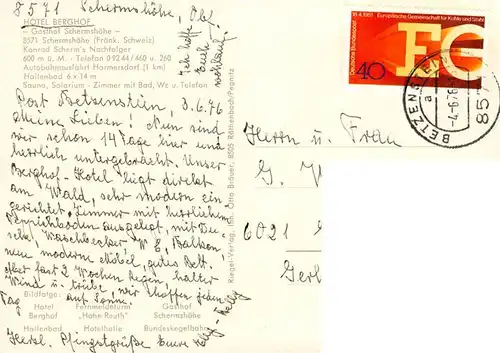 8571 Schermshöhe, Obl.
HOTEL BERGHOF
— Gasthof Schermshöhe —
8571 Schermshöhe (Fränk. Schweiz)
Konrad Scherm's Nachfolger
600 m ü. M. · Telefon 0 92 44 / 460 u. 260
Autobahnausfahrt Hormersdorf (1 km)
Hallenbad 6 x 14 m
Sauna, Solarium · Zimmer mit Bad, Wc u. Telefon
Ich hoffe
Euch
wohlauf.
Post Betzenstein, 8.6.76
Meine Lieben! Nun sind
wir schon 14 Tage hier und
herrlich untergebracht. Unser
Berghof-Hotel liegt direkt
am Wald, sehr modern ein
gerichtet, Zimmer mit herrlichem
Teppichboden ausgelegt, mit Du-
sche, Waschbecken W.C, Balkon,
neue moderne Möbel, gutes Bett.
Aber fast 2 Wochen Regen, kalter
Wind u. trübe, wir hoffen jeden
Tag auf Sonne.
Bildfolge:
Hotel Berghof
Fernmeldeturm "Hohe Reuth"
Gasthof Schermshöhe
Hallenbad Hotelhalle Bundeskegelbahn
Herzl. Pfingstgrüße Eure
Riegel-Verlag, Inh. Otto Bräuer, 8505 Röthenbach/Pegnitz
18.4.1951 Europäische Gemeinschaft für Kohle und Stahl
Deutsche Bundespost
40
EG
BETZENSTEIN
a
-4.-6.76
857
Herrn u. Frau
G.
6021
Gerb